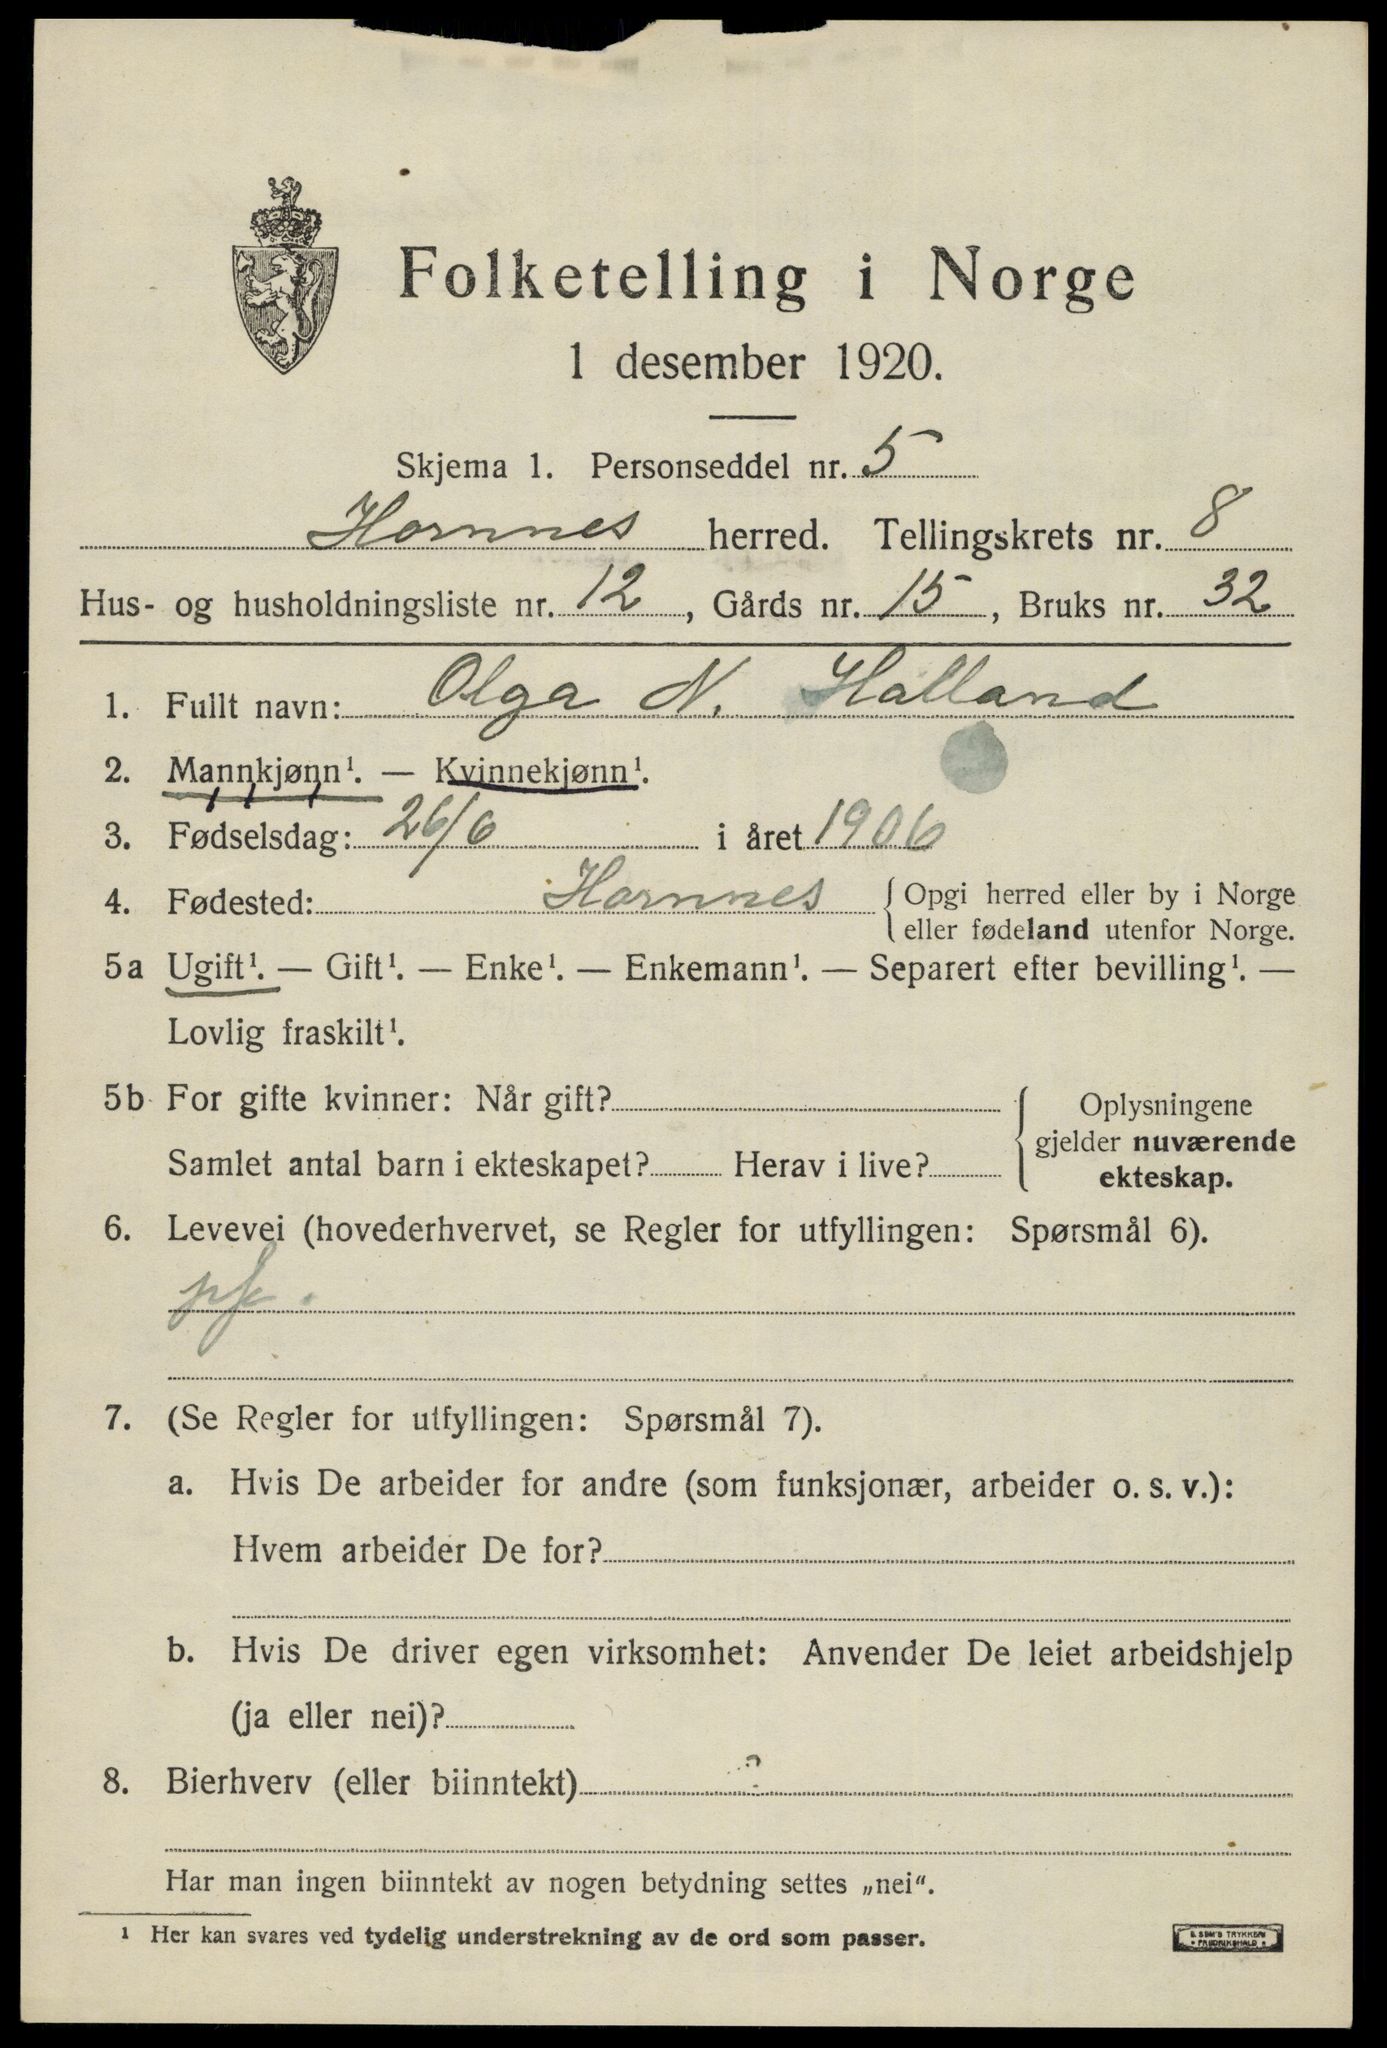 Folketelling i Norge
1 desember 1920.
Skjema 1. Personseddel nr. 5
Hornnes herred. Tellingskrets nr. 8
Hus- og husholdningsliste nr. 12, Gårds nr. 15, Bruks nr. 32
1. Fullt navn: Olga N. Halland
2. Mannkjønn¹. — Kvinnekjønn¹.
3. Fødselsdag: 26/6 i året 1906
4. Fødested: Hornnes { Opgi herred eller by i Norge
eller fødeland utenfor Norge.
5a Ugift¹. — Gift¹. — Enke¹. — Enkemann¹. — Separert efter bevilling¹. —
Lovlig fraskilt¹.
5b For gifte kvinner: Når gift?
Samlet antal barn i ekteskapet? Herav i live?
Oplysningene
gjelder nuværende
ekteskap.
6. Levevei (hovederhvervet, se Regler for utfyllingen: Spørsmål 6).
7. (Se Regler for utfyllingen: Spørsmål 7).
a. Hvis De arbeider for andre (som funksjonær, arbeider o. s. v.):
Hvem arbeider De for?
b. Hvis De driver egen virksomhet: Anvender De leiet arbeidshjelp
(ja eller nei)?
8. Bierhverv (eller biinntekt) ?
Har man ingen biinntekt av nogen betydning settes „nei“.
¹ Her kan svares ved tydelig understrekning av de ord som passer.
FREDRIKSHALD